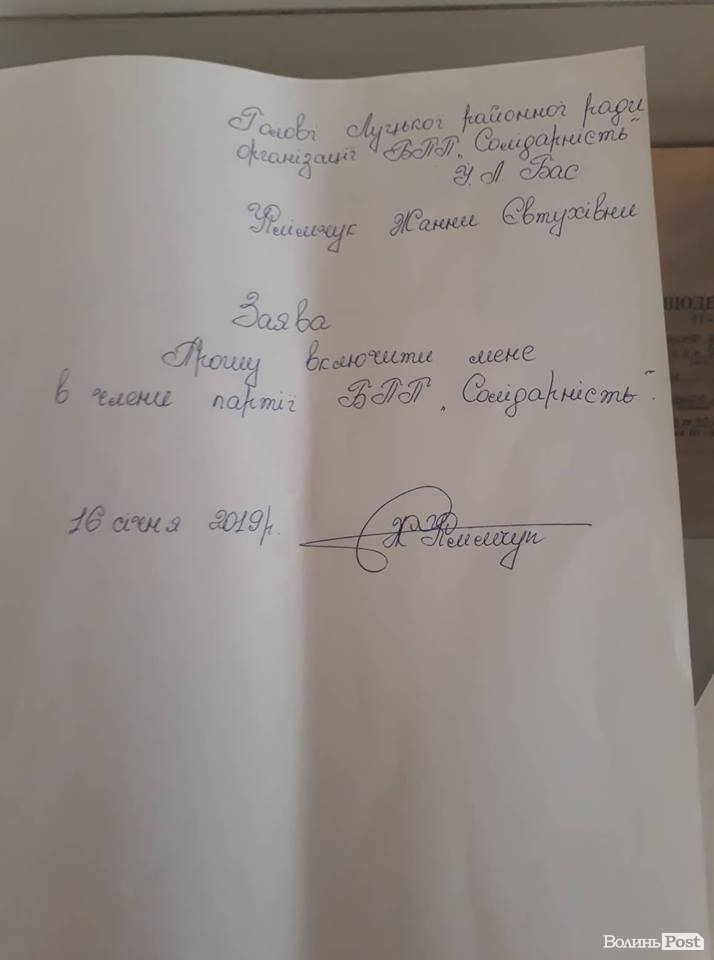 Голові Луцької районної ради
організації БПП „Солідарність"
Л Бас
Клімчук Жанни Євтухівни
Заява
Прошу включити мене
в члени партії БПП „Солідарність".
16 січня 2019р.
Ж Клімчук
ЩОДЕ
ВолиньPost